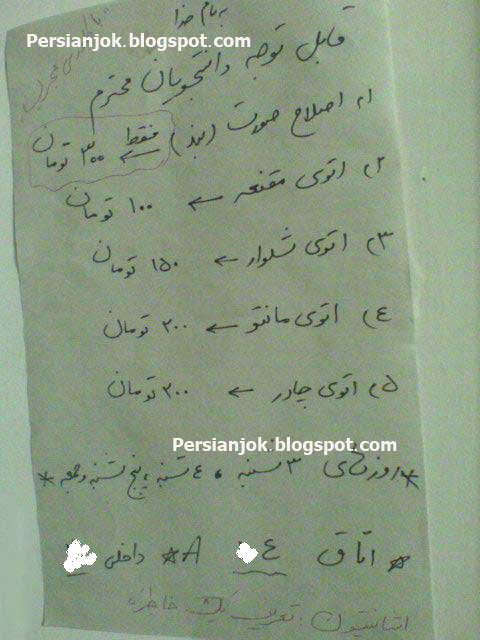 به نام خدا
Persianjok.blogspot.com
قابل توجه دانشجویان محترم
۱) اصلاح صورت (بند) فقط ← ۳۰۰ تومان
۲) اتوی مقنعه ← ۱۰۰ تومان
۳) اتوی شلوار ← ۱۵۰ تومان
٤) اتوی مانتو ← ۲۰۰ تومان
۵) اتوی چادر ← ۲۰۰ تومان
Persianjok.blogspot.com
* روزهای ۳ شنبه، ٤ شنبه، پنج شنبه و جمعه *
* اتاق ٤ A * داخلی